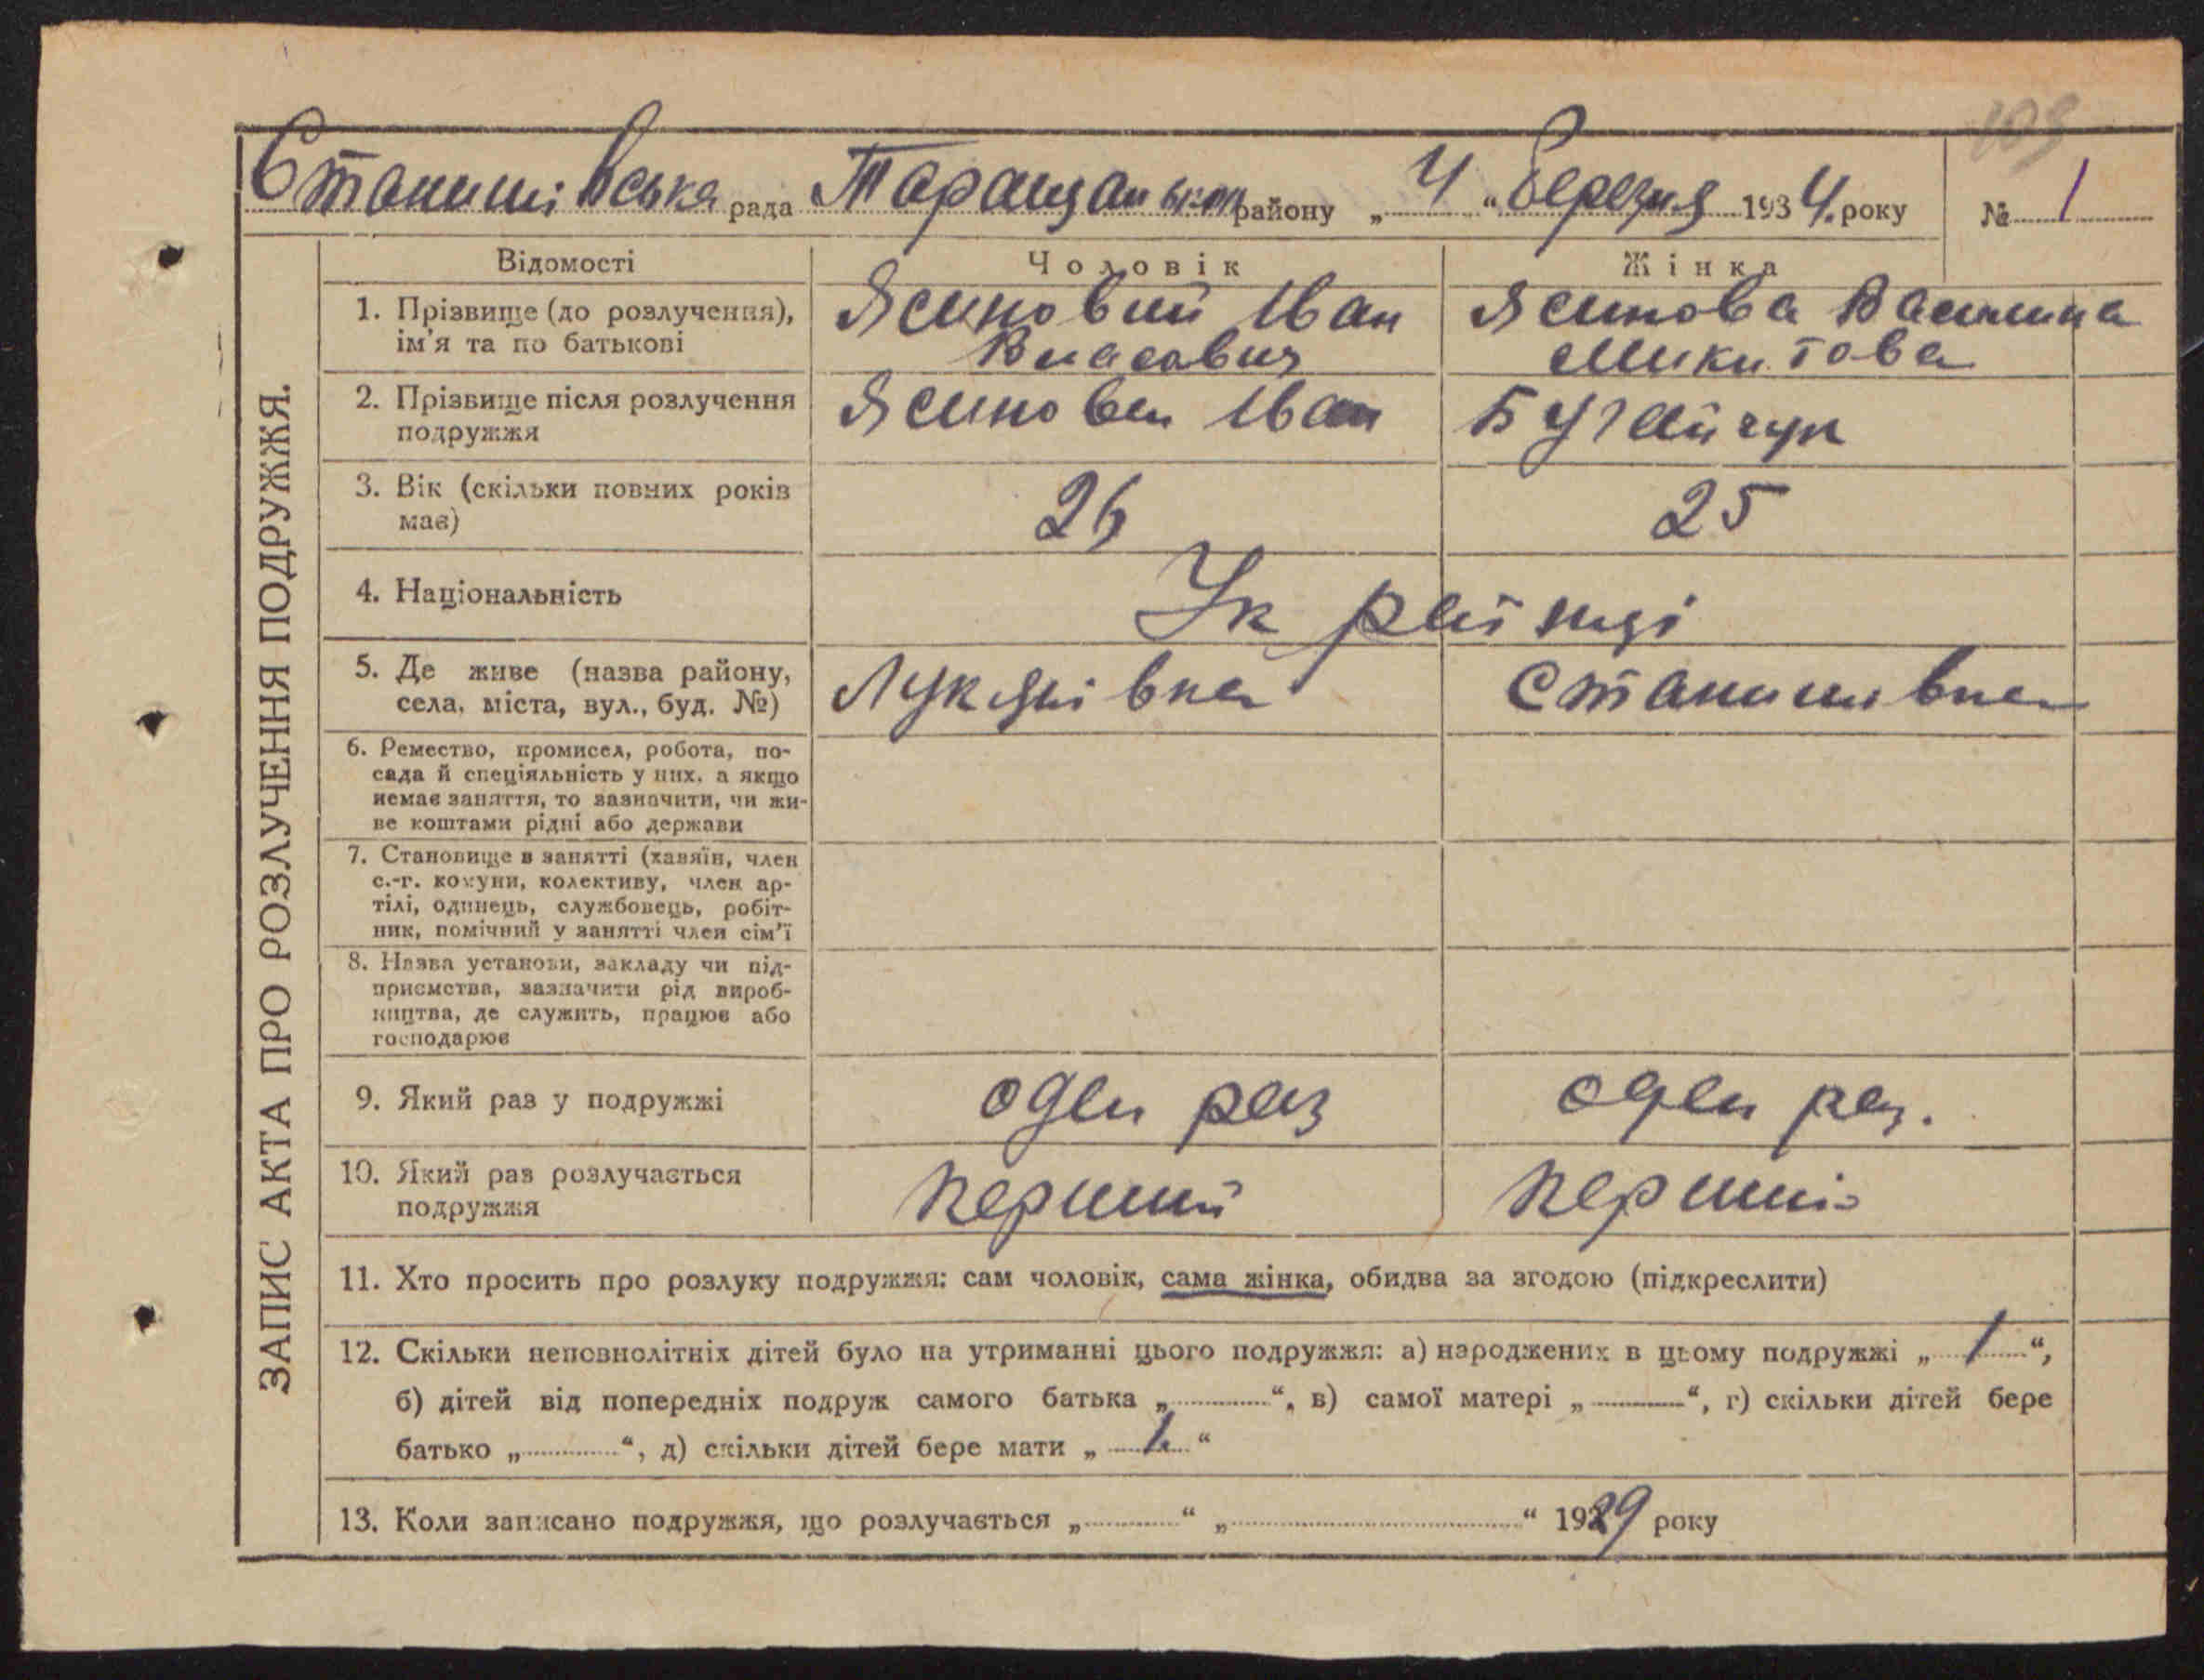 109
Станишівська рада Таращанського району „ 4 “ Березня 1934. року № 1
ЗАПИС АКТА ПРО РОЗЛУЧЕННЯ ПОДРУЖЖЯ.
Відомості Чоловік Жінка
1. Прізвище (до розлучення), ім'я та по батькові
Ясиновий Іван
Власович
Ясинова Василина
Микитова
2. Прізвище після розлучення
подружжя
Ясинови Іван
Бугайчук
3. Вік (скільки повних років
має)
26 25
4. Національність
Українці
5. Де живе (назва району,
села, міста, вул., буд. №)
Лукянівка Станишівка
6. Ремество, промисел, робота, по-
сада й спеціяльність у них, а якщо
немає заняття, то зазначити, чи жи-
ве коштами рідні або держави
7. Становище в занятті (хазяїн, член
с.-г. комуни, колективу, член ар-
тілі, одинець, службовець, робіт-
ник, помічний у занятті член сім'ї
8. Назва установи, закладу чи під-
приємства, зазначити рід вироб-
ництва, де служить, працює або
господарює
9. Який раз у подружжі один раз один раз.
10. Який раз розлучається
подружжя
перший перший
11. Хто просить про розлуку подружжя: сам чоловік, сама жінка, обидва за згодою (підкреслити)
12. Скільки неповнолітніх дітей було на утриманні цього подружжя: а) народжених в цьому подружжі „ 1 “,
б) дітей від попередніх подруж самого батька „ “, в) самої матері „ “, г) скільки дітей бере
батько „ “, д) скільки дітей бере мати „ 1. “
13. Коли записано подружжя, що розлучається „ “ „ “ 1929 року